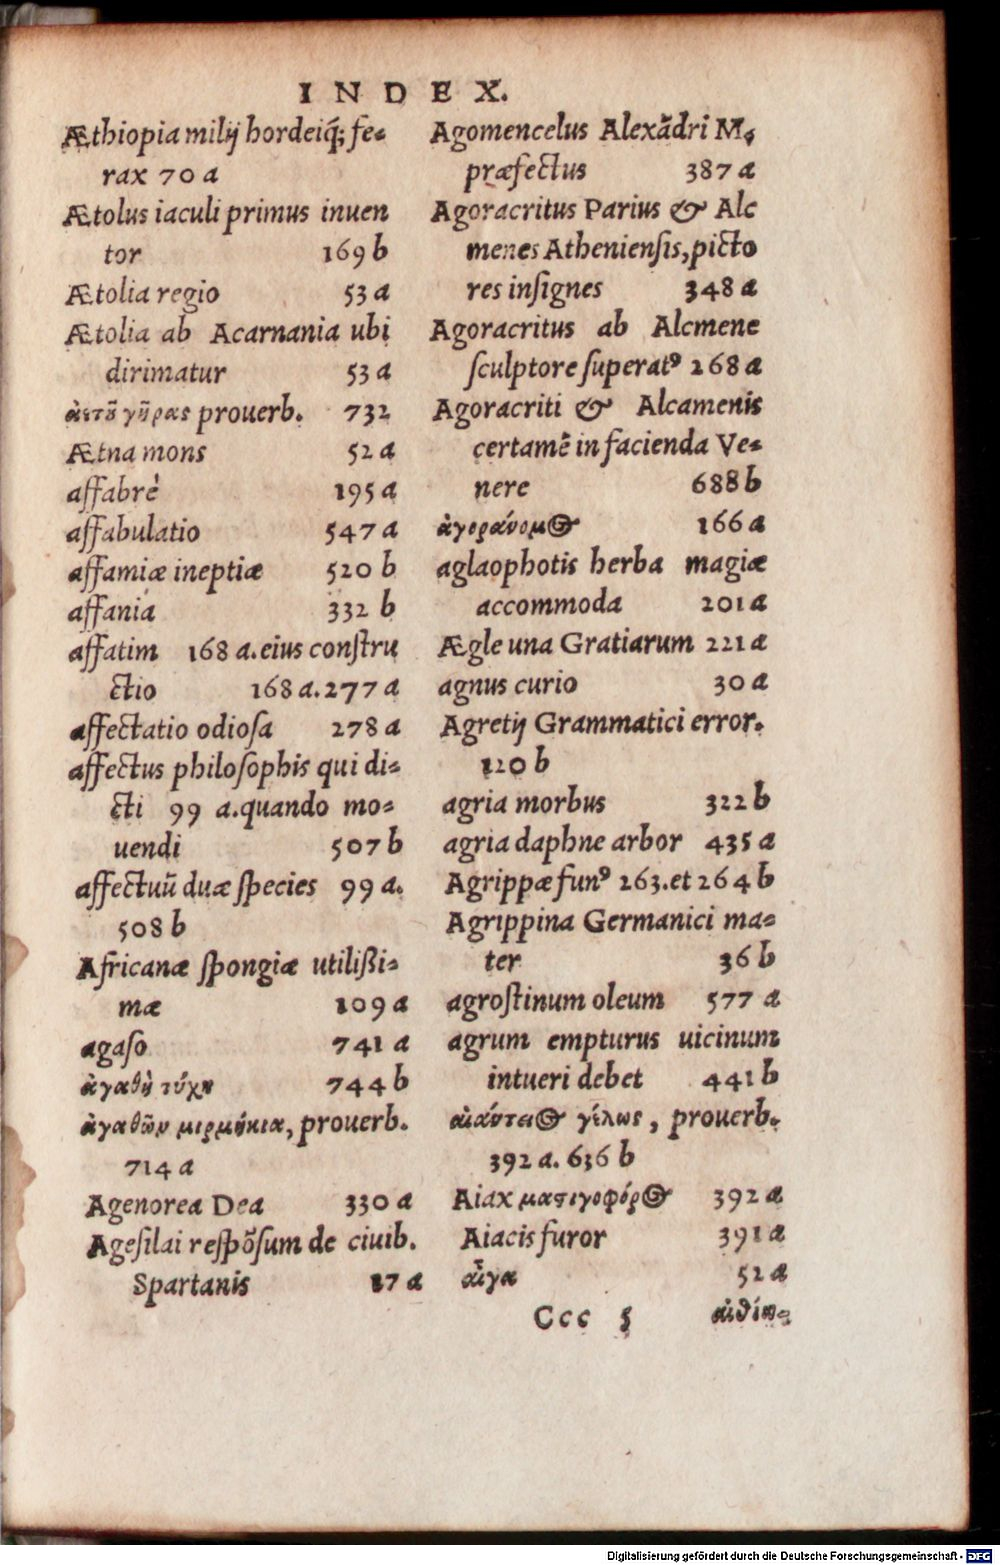 INDEX.
Æthiopia milij hordeiq́; fe-
rax 70 a
Ætolus iaculi primus inuen
tor 169 b
Ætolia regio 53 a
Ætolia ab Acarnania ubi
dirimatur 53 a
ἀετȣ͂ γῆρας prouerb. 732
Ætna mons 52 a
affabrè 195 a
affabulatio 547 a
affamiæ ineptiæ 520 b
affania 332 b
affatim 168 a. eius constru
ctio 168 a. 277 a
affectatio odiosa 278 a
affectus philosophis qui di-
cti 99 a. quando mo-
uendi 507 b
affectuũ duæ species 99 a.
508 b
Africanæ spongiæ utilißi-
mæ 109 a
agaso 741 a
ἀγαθὴ τύχη 744 b
ἀγαθῶν μιρμήκια, prouerb.
714 a
Agenorea Dea 330 a
Agesilai respõsum de ciuib.
Spartanis 17 a
Agomencelus Alexãdri M,
præfectus 387 a
Agoracritus Parius & Alc
menes Atheniensis, picto
res insignes 348 a
Agoracritus ab Alcmene
sculptore superatꝰ 268 a
Agoracriti & Alcamenis
certamẽ in facienda Ve-
nere 688 b
ἀγοράνομος 166 a
aglaophotis herba magiæ
accommoda 201 a
Ægle una Gratiarum 221 a
agnus curio 30 a
Agretij Grammatici error.
120 b
agria morbus 322 b
agria daphne arbor 435 a
Agrippæ funꝰ 263. et 264 b
Agrippina Germanici ma-
ter 36 b
agrostinum oleum 577 a
agrum empturus uicinum
intueri debet 441 b
αἰάντειος γέλως, prouerb.
392 a. 636 b
Aiax μαστιγοφόρος 392 a
Aiacis furor 391 a
αἶγα 52 a
Ccc 5